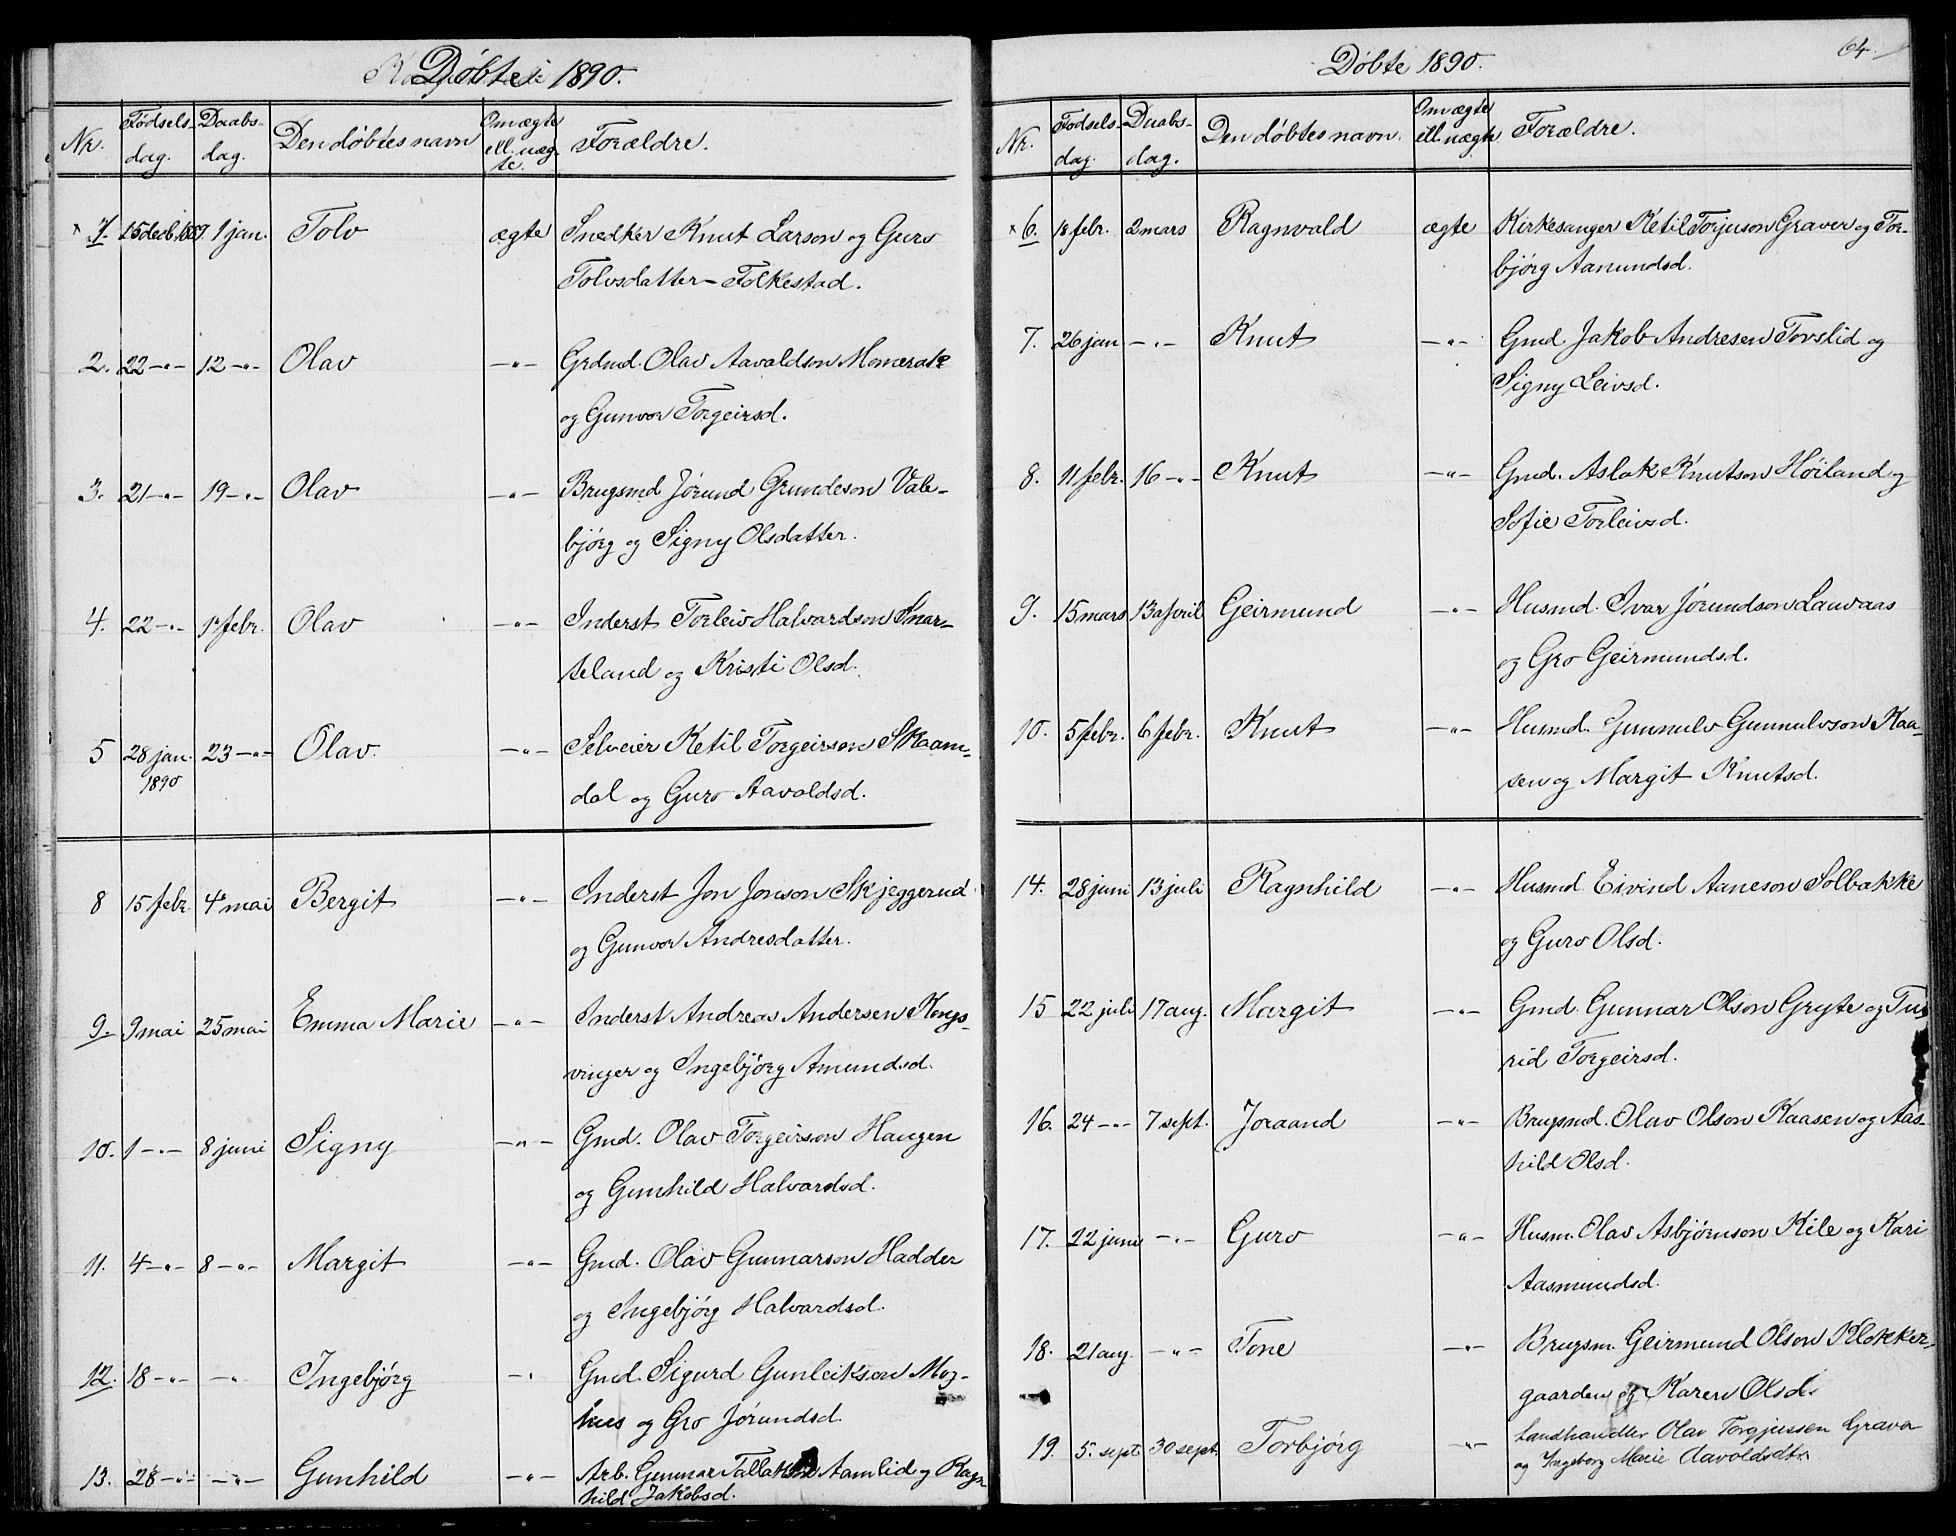 Døbte 1890.
Nr. Fødsels- dag. Daabs- dag. Den døbtes navn Om ægte ell. uæg- te. Forældre.
1. 25 decb. 1889. 1 jan. Tolv ægte Snedker Knut Larson og Guro
Tolvsdatter – Folkestad.
2. 22 –"– 12 –"– Olav –"– Grdmd. Olav Aavaldson Momrak
og Gunvor Torgeirsd.
3. 21 –"– 19 –"– Olav –"– Brugsmd Jørund Grundeson Vale-
bjørg og Signy Olsdatter.
4. 22 –"– 1 febr. Olav –"– Inderst Torleiv Halvardson Snar-
teland og Kristi Olsd.
5 28 jan. 1890 23 –"– Olav. –"– Selveier Ketil Torgeirson Skaam-
dal og Guro Aavaldsd.
8 15 febr. 4 mai Bergit –"– Inderst Jon Jonson Skjeggerud
og Gunvor Andresdatter.
9 9 mai 25 mai Emma Marie –"– Inderst Andreas Andersen Kongs-
vinger og Ingebjørg Amundsd.
10. 1 –"– 8 juni Signy –"– Gmd. Olav Torgeirson Haugen
og Gunhild Halvardsd.
11. 4 –"– 8 –"– Margit –"– Gmd. Olav Gunnarson Hadder
og Ingebjørg Halvardsd.
12. 18 –"– –"– Ingebjørg –"– Gmd. Sigurd Gunleikson Mog-
hus og Gro Jørundsd.
13. 28 –"– –"– Gunhild –"– Arb. Gunnar Tallakson Aamlid og Ragn
hild Jakobsd.
Døbte 1890. 64.
Nr. Fødsels- dag. Daabs- dag. Den døbtes navn. Om ægte ell. uægte Forældre.
6. 18 febr. 2 mars Ragnvald ægte Kirkesanger Ketil Torjuson Graver og Tor-
bjørg Aanundsd.
7. 26 jan –"– Knut –"– Gmd. Jakob Andresen Torslid og
Signy Leivsd.
8. 11 febr. 16 –"– Knut –"– Gmd. Aslak Knutson Høiland og
Sofie Torleivsd.
9. 15 mars 13 april Geirmund –"– Husmd. Ivar Jørundson Lauvaas
og Gro Geirmundsd.
10. 5 febr. 6 febr. Knut –"– Husmd. Gunnulv Gunnulvson Kaa-
sen og Margit Knutsd.
14. 28 juni 13 juli Ragnhild –"– Husmd. Eivind Aaneson Solbakke
og Guro Olsd.
15 22 juli 17 aug. Margit –"– Gmd. Gunnar Olson Gryte og Tu-
rid Torgeirsd.
16. 24 –"– 7 sept. Joraand –"– Brugsmd. Olav Olson Kaasen og Aas-
hild Olsd.
17. 22 juni –"– Guro –"– Husm. Olav Asbjørnson Kile og Kari
Aasmundsd.
18. 21 aug. –"– Tone –"– Brugsm. Geirmund Olson Klokker-
gaarden og Karen Olsd.
19. 5. sept. 30 sept. Torbjørg –"– Landhandler Olav Torgjussen Graver
og Ingeborg Marie Aavoldsdtr.